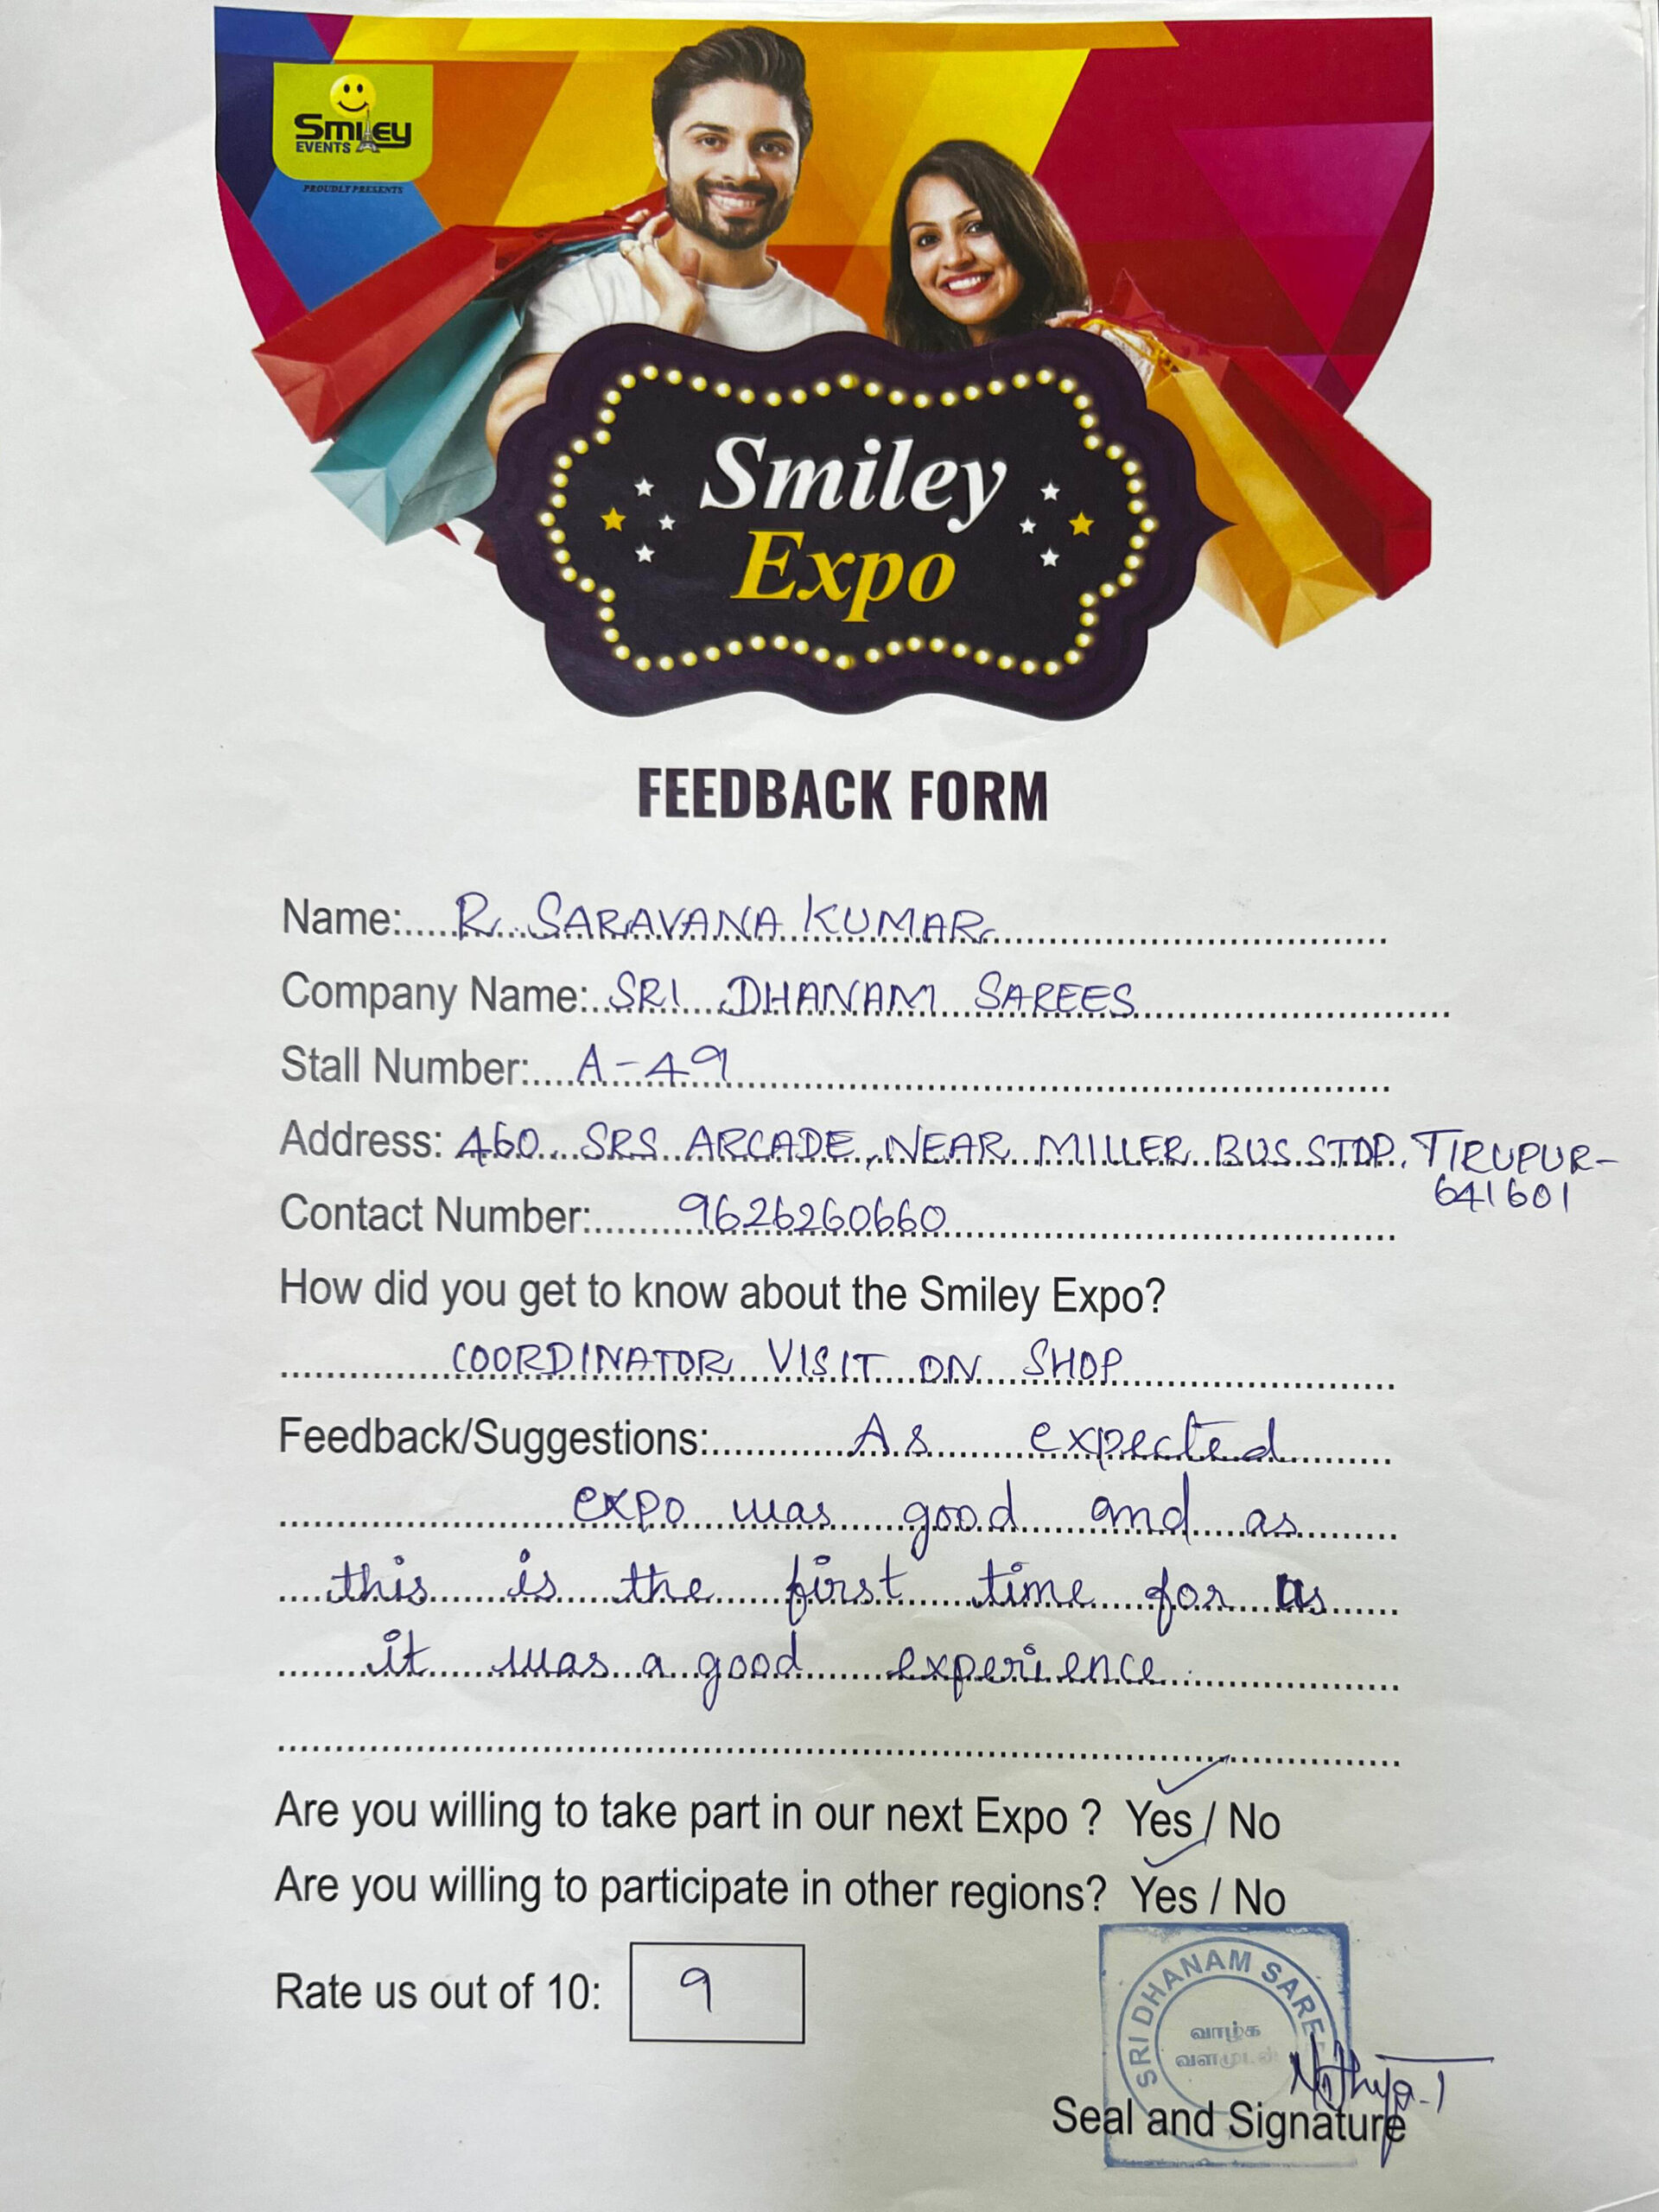 Smiley
EVENTS
PROUDLY PRESENTS
Smiley
Expo
FEEDBACK FORM
Name: R. SARAVANA KUMAR
Company Name: SRI DHANAM SAREES
Stall Number: A-49
Address: 460 SRS ARCADE, NEAR MILLER BUS STOP, TIRUPUR-
641601
Contact Number: 9626260660
How did you get to know about the Smiley Expo?
COORDINATOR VISIT ON SHOP
Feedback/Suggestions: As expected
expo was good and as
this is the first time for us
it was a good experience.
Are you willing to take part in our next Expo ? Yes / No
Are you willing to participate in other regions? Yes / No
Rate us out of 10: 9
SRI DHANAM SAREE
வாழ்க
வளமுடன்
Nithya.T
Seal and Signature